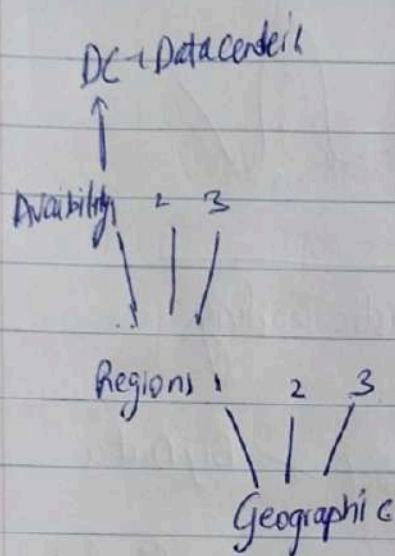 DC → Datacenter
Avaibility 1 2 3
Regions 1 2 3
Geographic